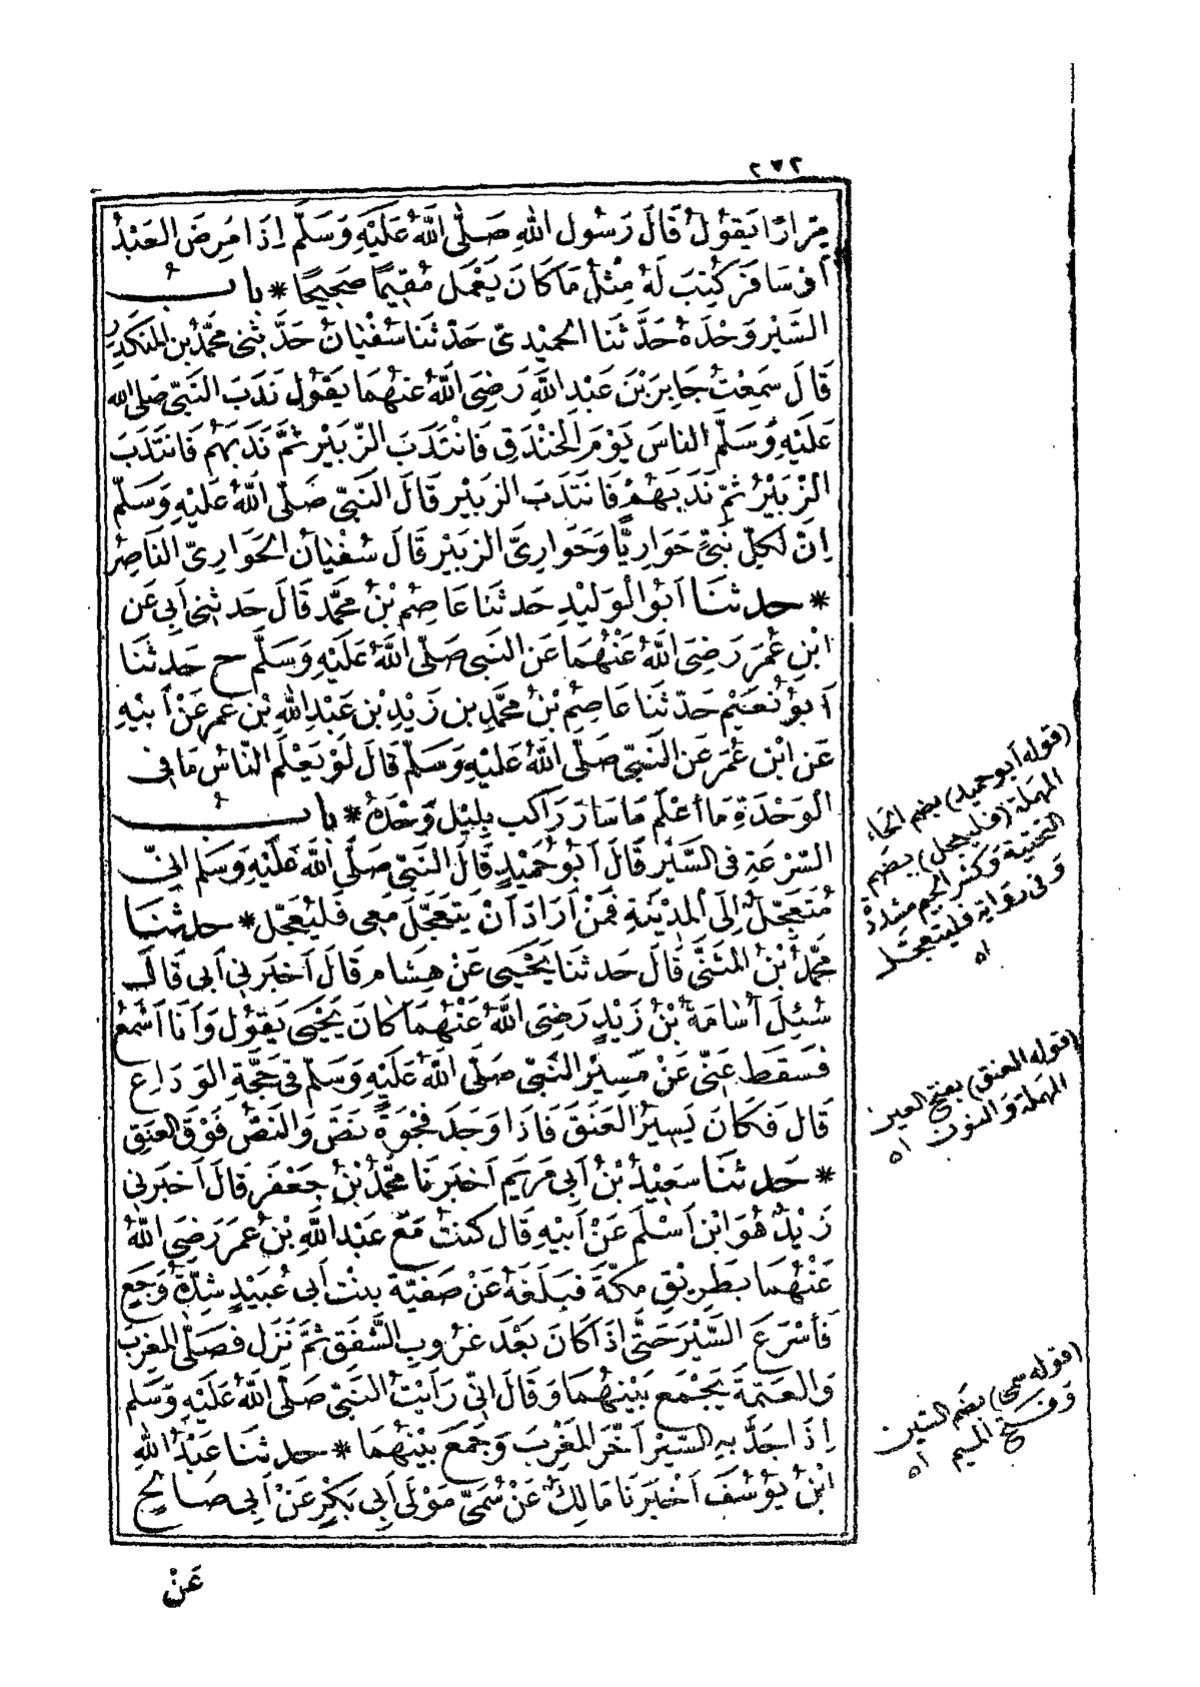 ٢٧٢
مِرَارًا يَقُولُ قَالَ رَسُولُ اللهِ صَلَّى اللهُ عَلَيْهِ وَسَلَّمَ إِذَا مَرِضَ العَبْدُ
أَوْ سَافَرَ كُتِبَ لَهُ مِثْلُ مَا كَانَ يَعْمَلُ مُقِيمًا صَحِيحًا * بابُ
السَّيْرِ وَحْدَهُ حَدَّثَنَا الحُمَيْدِيُّ حَدَّثَنَا سُفْيَانُ حَدَّثَنِي مُحَمَّدُ بْنُ المُنْكَدِرِ
قَالَ سَمِعْتُ جَابِرَ بْنَ عَبْدِ اللهِ رَضِيَ اللهُ عَنْهُمَا يَقُولُ نَدَبَ النَّبِيُّ صَلَّى اللهُ
عَلَيْهِ وَسَلَّمَ النَّاسَ يَوْمَ الخَنْدَقِ فَانْتَدَبَ الزُّبَيْرُ ثُمَّ نَدَبَهُمْ فَانْتَدَبَ
الزُّبَيْرُ ثُمَّ نَدَبَهُمْ فَانْتَدَبَ الزُّبَيْرُ قَالَ النَّبِيُّ صَلَّى اللهُ عَلَيْهِ وَسَلَّمَ
إِنَّ لِكُلِّ نَبِيٍّ حَوَارِيًّا وَحَوَارِيَّ الزُّبَيْرُ قَالَ سُفْيَانُ الحَوَارِيُّ النَّاصِرُ
* حدثنا أَبُو الوَلِيدِ حَدَّثَنَا عَاصِمُ بْنُ مُحَمَّدٍ قَالَ حَدَّثَنِي أَبِي عَنِ
ابْنِ عُمَرَ رَضِيَ اللهُ عَنْهُمَا عَنِ النَّبِيِّ صَلَّى اللهُ عَلَيْهِ وَسَلَّمَ ح حَدَّثَنَا
أَبُو نُعَيْمٍ حَدَّثَنَا عَاصِمُ بْنُ مُحَمَّدِ بْنِ زَيْدِ بْنِ عَبْدِ اللهِ بْنِ عُمَرَ عَنْ أَبِيهِ
عَنِ ابْنِ عُمَرَ عَنِ النَّبِيِّ صَلَّى اللهُ عَلَيْهِ وَسَلَّمَ قَالَ لَوْ يَعْلَمُ النَّاسُ مَا فِي
الوَحْدَةِ مَا أَعْلَمُ مَا سَارَ رَاكِبٌ بِلَيْلٍ وَحْدَهُ * بابُ
السُّرْعَةِ فِي السَّيْرِ قَالَ أَبُو حُمَيْدٍ قَالَ النَّبِيُّ صَلَّى اللهُ عَلَيْهِ وَسَلَّمَ إِنِّي
مُتَعَجِّلٌ إِلَى المَدِينَةِ فَمَنْ أَرَادَ أَنْ يَتَعَجَّلَ مَعِي فَلْيُعَجِّلْ * حدثنا
مُحَمَّدُ بْنُ المُثَنَّى قَالَ حَدَّثَنَا يَحْيَى عَنْ هِشَامٍ قَالَ أَخْبَرَنِي أَبِي قَالَ
سُئِلَ أُسَامَةُ بْنُ زَيْدٍ رَضِيَ اللهُ عَنْهُمَا كَانَ يَحْيَى يَقُولُ وَأَنَا أَسْمَعُ
فَسَقَطَ عَنِّي عَنْ مَسِيرِ النَّبِيِّ صَلَّى اللهُ عَلَيْهِ وَسَلَّمَ فِي حَجَّةِ الوَدَاعِ
قَالَ فَكَانَ يَسِيرُ العَنَقَ فَإِذَا وَجَدَ فَجْوَةً نَصَّ وَالنَّصُّ فَوْقَ العَنَقِ
* حدثنا سَعِيدُ بْنُ أَبِي مَرْيَمَ أَخْبَرَنَا مُحَمَّدُ بْنُ جَعْفَرٍ قَالَ أَخْبَرَنِي
زَيْدٌ هُوَ ابْنُ أَسْلَمَ عَنْ أَبِيهِ قَالَ كُنْتُ مَعَ عَبْدِ اللهِ بْنِ عُمَرَ رَضِيَ اللهُ
عَنْهُمَا بِطَرِيقِ مَكَّةَ فَبَلَغَهُ عَنْ صَفِيَّةَ بِنْتِ أَبِي عُبَيْدٍ شِدَّةُ وَجَعٍ
فَأَسْرَعَ السَّيْرَ حَتَّى إِذَا كَانَ بَعْدَ غُرُوبِ الشَّفَقِ ثُمَّ نَزَلَ فَصَلَّى المَغْرِبَ
وَالعَتَمَةَ يَجْمَعُ بَيْنَهُمَا وَقَالَ إِنِّي رَأَيْتُ النَّبِيَّ صَلَّى اللهُ عَلَيْهِ وَسَلَّمَ
إِذَا جَدَّ بِهِ السَّيْرُ أَخَّرَ المَغْرِبَ وَجَمَعَ بَيْنَهُمَا * حدثنا عَبْدُ اللهِ
ابْنُ يُوسُفَ أَخْبَرَنَا مَالِكٌ عَنْ سُمَيٍّ مَوْلَى أَبِي بَكْرٍ عَنْ أَبِي صَالِحٍ
عَنْ
(قوله أبو حميد) بضم الحاء
المهملة (فليعجل) بضم
التحتية وكسر الجيم مشددة
وفى رواية فليتعجل
اه
(قوله العنق) بفتح العين
المهملة والنون اه
(قوله سمى) بضم السين
وفتح الميم اه